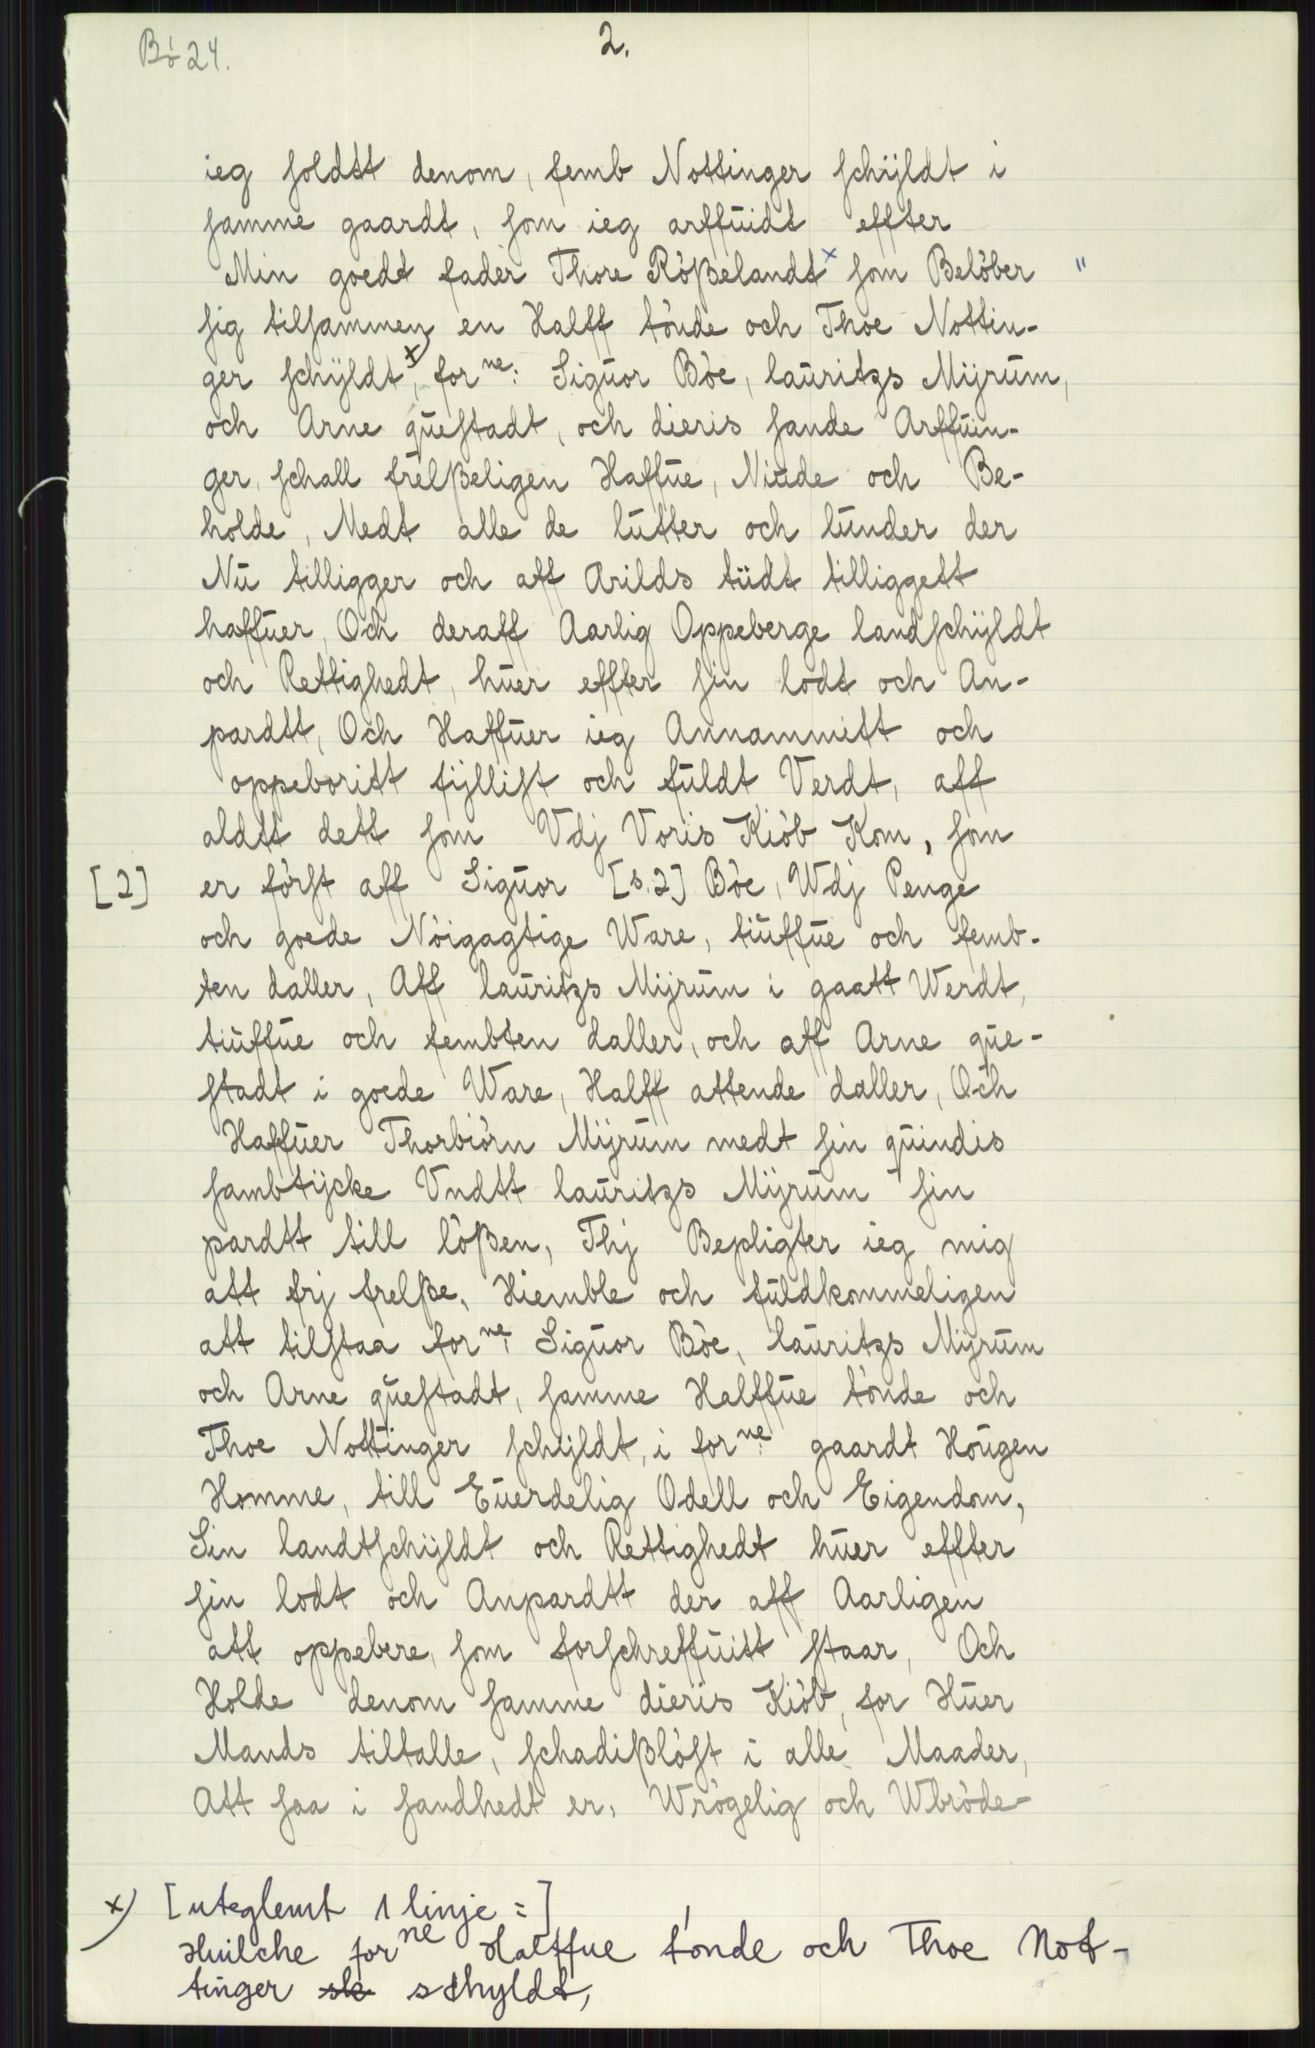 Bö 24.
2.
ieg soldtt denom, femb Nottinger schÿldt i
samme gaardt, som ieg arffuidt effter
Min goedt fader Thore Rößelandt x som Belöber "
sig tilsammen en Halff tönde och Thoe Nottin-
ger schÿldt, x) for ne: Siguor Böe, lauritzs Mÿrum,
och Arne questadt, och dieris sande Arffuin-
ger, schall frelßeligen Haffue, Niude och Be-
holde, Medt alle de lutter och lunder der
Nu tilligger och aff Arilds tüdt tilliggett
haffuer, Och deraff Aarlig Oppeberge landschÿldt
och Rettighedt, huer effter sin lodt och An-
pardtt, Och Haffuer ieg Annammett och
oppeboritt fÿllist och fuldt Verdt, aff
aldtt dett som Vdj Voris Kiöb Kom, som
[2] er först aff Siguor [s. 2] Böe, Wdj Penge
och goede Nöigagtige Ware, tiuffue och femb-
ten daller, Aff lauritzs Mÿrum i gaatt Werdt,
tiuffue och fembten daller, och aff Arne que-
stadt i goede Ware, Halff attende daller, Och
Haffuer Thorbiörn Mÿrum medt sin quindis
sambtÿcke Vndtt lauritzs Mÿrum sin
pardtt till lößen, Thj Bepligter ieg mig
att frj frelße, Hiemble och fuldkommeligen
att tilstaa for ne: Siguor Böe, lauritzs Mÿrum
och Arne questadt, samme Halffue tönde och
Thoe Nottinger schÿldt, i for ne: gaardt Hougen
Homme, till Euerdelig Odell och Eigendom,
Sin landtschÿldt och Rettighedt huer effter
sin lodt och Anpardtt der aff Aarligen
att oppebere, som forschreffuitt staar, Och
Holde denom samme dieris Kiöb, for Huer
Mands tiltalle, schadißlöst i alle Maader,
Att saa i sandhedt er, Wrögelig och Wbröde-
x) [uteglemt 1 linje =]
Huilche for ne Halffue tönde och Thoe Not-
tinger sk schyldt,